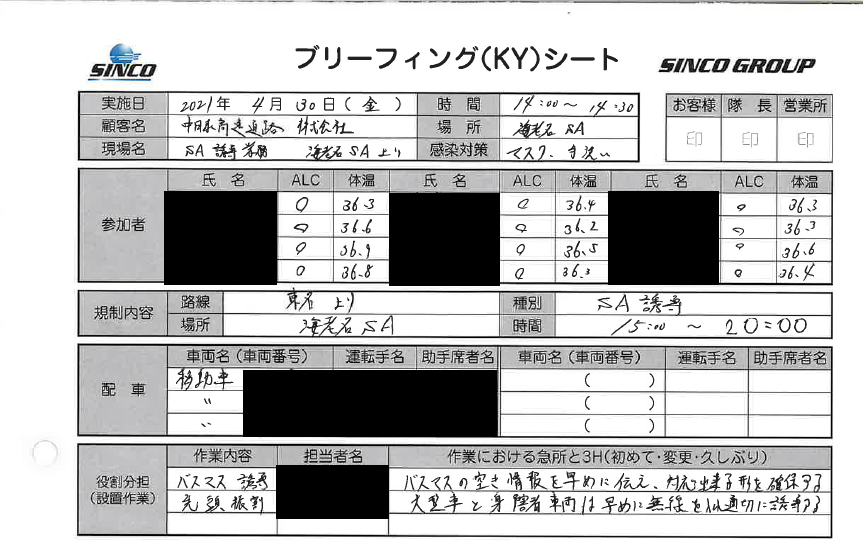 SINCO
ブリーフィング(KY)シート
SINCO GROUP
実施日 2021年 4月 30日(金) 時間 14:00〜14:30
顧客名 中日本高速道路 株式会社 場所 海老名SA
現場名 SA誘導業務 海老名SA上り 感染対策 マスク、手洗い
お客様 隊長 営業所
印 印 印
参加者
氏名 ALC 体温 氏名 ALC 体温 氏名 ALC 体温
0 36.3 0 36.4 0 36.3
0 36.6 0 36.2 0 36.3
0 36.9 0 36.5 0 36.6
0 36.8 0 36.3 0 36.4
規制内容
路線 東名 上り 種別 SA誘導
場所 海老名SA 時間 15:00 〜 20:00
配車
車両名(車両番号) 運転手名 助手席者名 車両名(車両番号) 運転手名 助手席者名
移動車 ( )
〃 ( )
〃 ( )
役割分担
(設置作業)
作業内容 担当者名 作業における急所と3H(初めて・変更・久しぶり)
バスマス誘導 バスマスの空き情報を早めに伝え、対応出来る形を確保する
先頭振割 大型車と身障者車両は早めに無線を 適切に誘導する